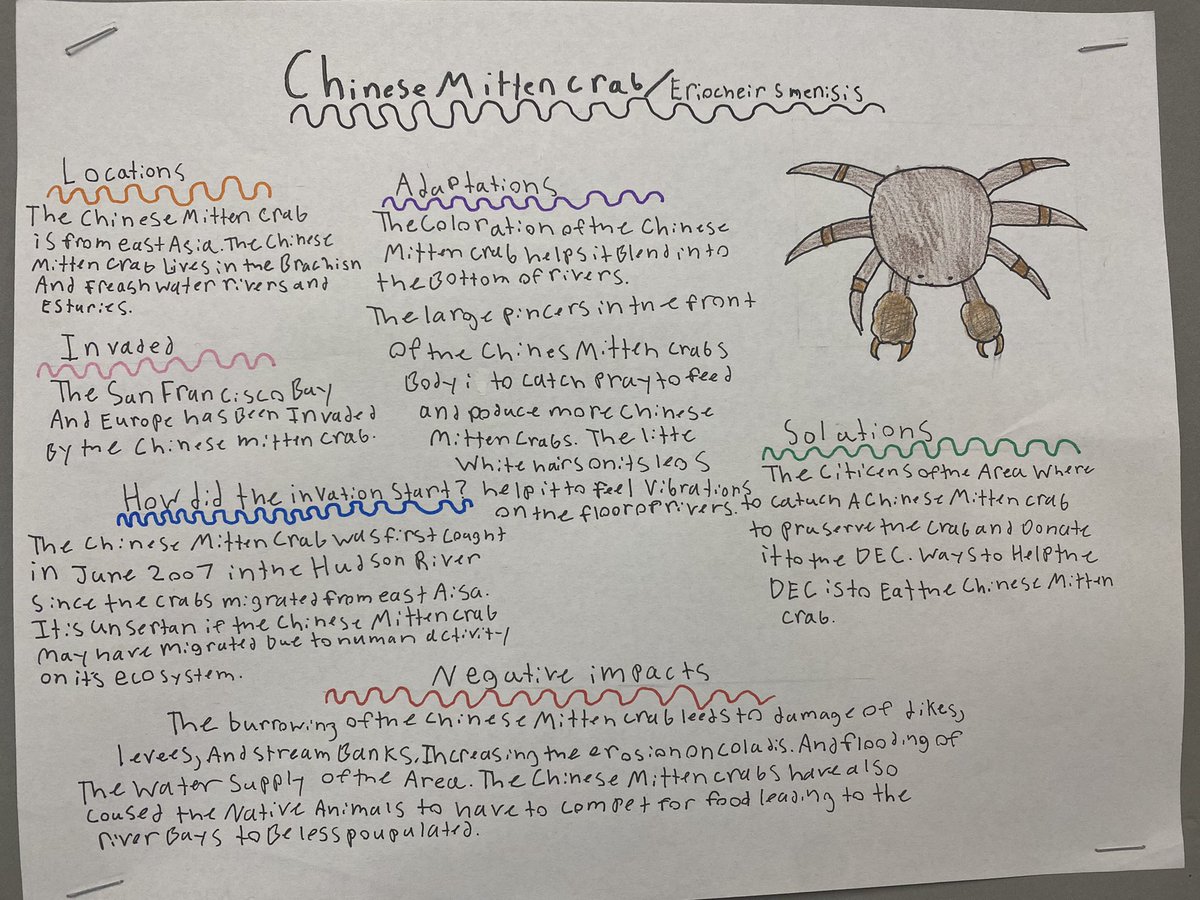 Chinese Mitten crab/Eriocheir smenisis
Locations
The Chinese Mitten crab
is from east Asia. The Chinese
Mitten crab Lives in the Brachish
And freash water rivers and
Esturies.
Invaded
The San Francisco Bay
And Europe has Been Invaded
By the Chinese mitten crab.
Adaptations
The Coloration of the Chinese
Mitten crab helps it Blend into
the Bottom of rivers.
The large pincers in the front
Of the Chines Mitten Crabs
Body i to catch pray to feed
and poduce more Chinese
Mitten Crabs. The litte
White hairs on its legs
help it to feel vibrations
on the floor of rivers.
How did the invation start?
The Chinese Mitten Crab was first cought
in June 2007 in the Hudson River
since the crabs migrated from east Aisa.
It is unsertan if the Chinese Mitten crab
may have migrated due to human activity
on its ecosystem.
Solations
The Citicens of the Area where
to catuch A Chinese Mitten crab
to praserve the crab and Donate
it to the DEC. Ways to Help the
DEC is to Eat the Chinese Mitten
crab.
Negative impacts
The burrowing of the Chinese Mitten crab leeds to damage of dikes,
levees, And stream Banks, Increasing the erosion on And flooding of
The Water Supply of the Area. The Chinese Mitten crabs have also
coused the Native Animals to have to compet for food leading to the
river Bays to Be less poupulated.